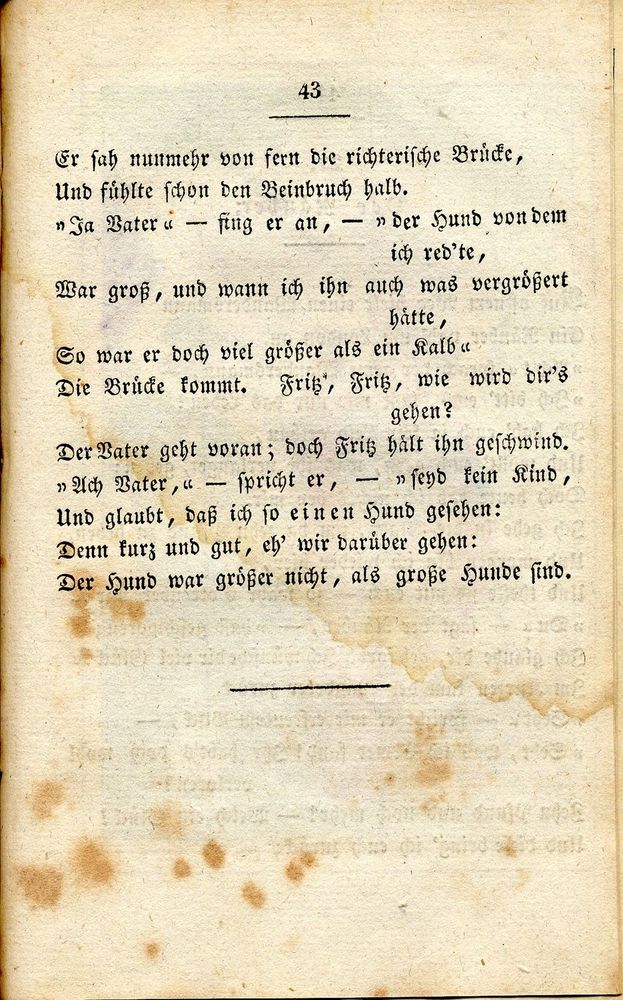 43
Er sah nunmehr von fern die richterische Brücke,
Und fühlte schon den Beinbruch halb.
„Ja Vater“ — fing er an, — „der Hund von dem
ich red'te,
War groß, und wann ich ihn auch was vergrößert
hätte,
So war er doch viel größer als ein Kalb“
Die Brücke kommt. Fritz', Fritz, wie wird dir's
gehen?
Der Vater geht voran; doch Fritz hält ihn geschwind.
„Ach Vater,“ — spricht er, — „seyd kein Kind,
Und glaubt, daß ich so einen Hund gesehen:
Denn kurz und gut, eh' wir darüber gehen:
Der Hund war größer nicht, als große Hunde sind.